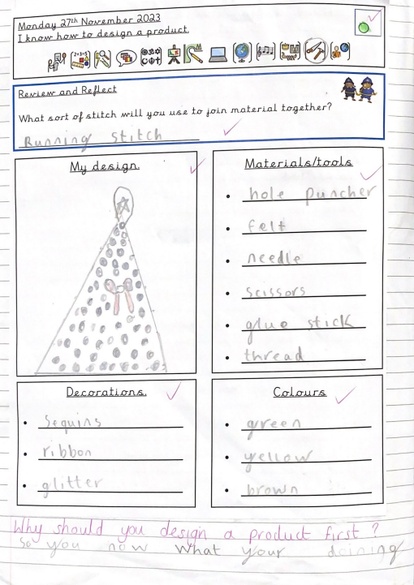 Monday 27th November 2023
I know how to design a product
Review and Reflect
What sort of stitch will you use to join material together?
Running stitch
My design
Materials/tools
hole puncher
felt
needle
scissors
glue stick
thread
Decorations
sequins
ribbon
glitter
Colours
green
yellow
brown
Why should you design a product first?
So you now what your doining